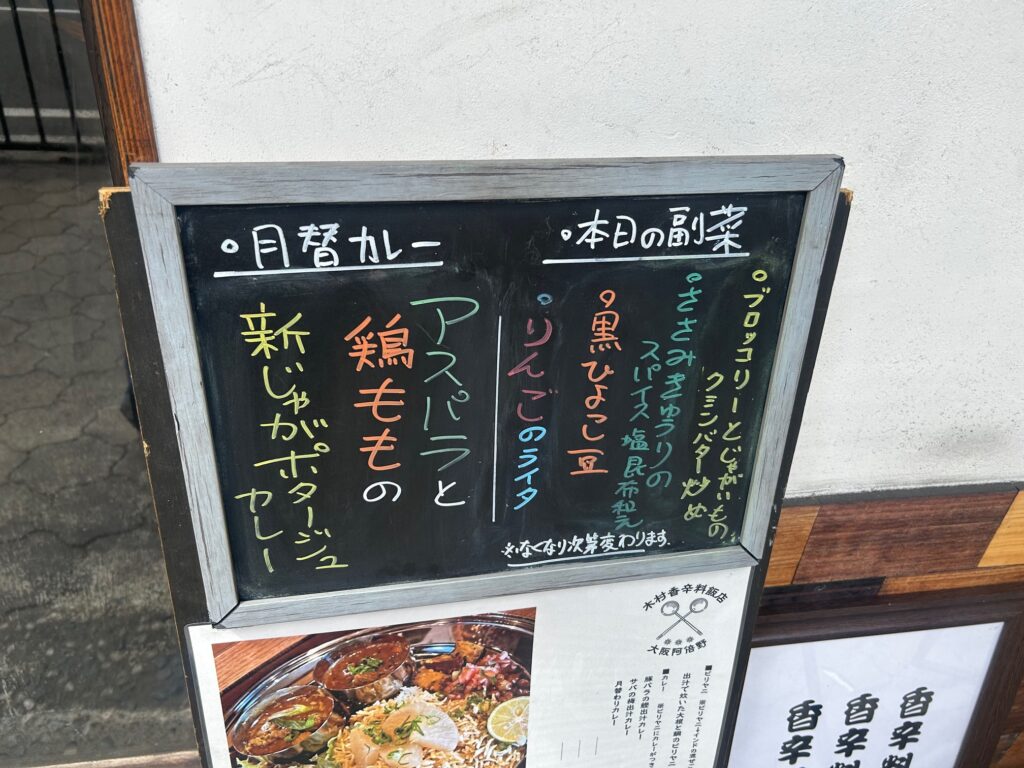 ・本日の副菜
・ブロッコリーとじゃがいもの
クミンバター炒め
・ささみきゅうりの
スパイス塩昆布和え
・黒ひよこ豆
・りんごのライタ
※なくなり次第変わります
・月替カレー
アスパラと
鶏ももの
新じゃがポタージュ
カレー
木村香辛料飯店
大阪阿倍野
■ビリヤニ
出汁で炊いた大根と鯛のビリヤニ
■カレー
豚バラの鰹出汁カレー
サバの梅出汁カレー
月替わりカレー
香辛料
香辛料
香辛